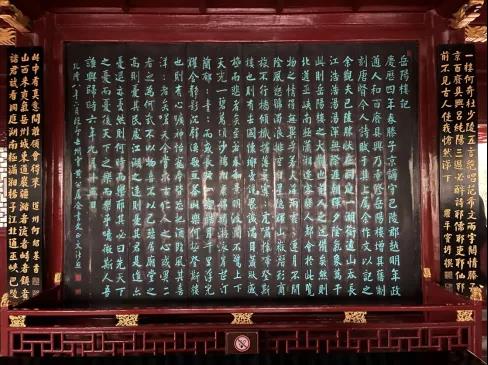 一樓何奇杜少陵五言絕唱范希文兩字關情滕子
京百廢具興呂純陽三過必醉詩耶儒耶吏耶仙耶
前不見古人使我愴然涕下
岳陽樓記
慶曆四年春滕子京謫守巴陵郡越明年政
通人和百廢具興乃重修岳陽樓增其舊制
刻唐賢今人詩賦于其上屬余作文以記之
余觀夫巴陵勝狀在洞庭一湖銜遠山吞長
江浩浩湯湯橫無際涯朝暉夕陰氣象萬千
此則岳陽樓之大觀也前人之述備矣然則
北通巫峽南極瀟湘遷客騷人多會於此覽
物之情得無異乎若夫霪雨霏霏連月不開
陰風怒號濁浪排空日星隱曜山岳潛形商
旅不行檣傾楫摧薄暮冥冥虎嘯猿啼登斯
樓也則有去國懷鄉憂讒畏譏滿目蕭然感
極而悲者矣至若春和景明波瀾不驚上下
天光一碧萬頃沙鷗翔集錦鱗游泳岸芷汀
蘭郁郁青青而或長煙一空皓月千里浮光
耀金靜影沉璧漁歌互答此樂何極登斯樓
也則有心曠神怡寵辱皆忘把酒臨風其喜洋
洋者矣嗟夫予嘗求古仁人之心或異二
者之為何哉不以物喜不以己悲居廟堂之
高則憂其民處江湖之遠則憂其君是進亦
憂退亦憂然則何時而樂耶其必曰先天下
之憂而憂後天下之樂而樂乎噫微斯人吾
誰與歸時六年九月十五日
諸君試看洞庭湖南極瀟湘揚子江北通巫峽巴陵
山西來爽氣岳州城東道巖疆瀦者流者峙者鎮者
此中有真意問誰領會得來 道州何紹基書